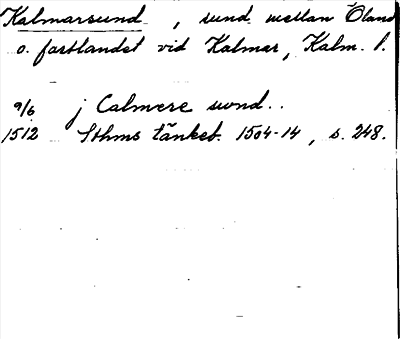 Kalmarsund, sund mellan Öland
o. fastlandet vid Kalmar, Kalm. l.
9/6 j Calmere swnd..
1512 Sthms tänkeb. 1504-14, s. 248.